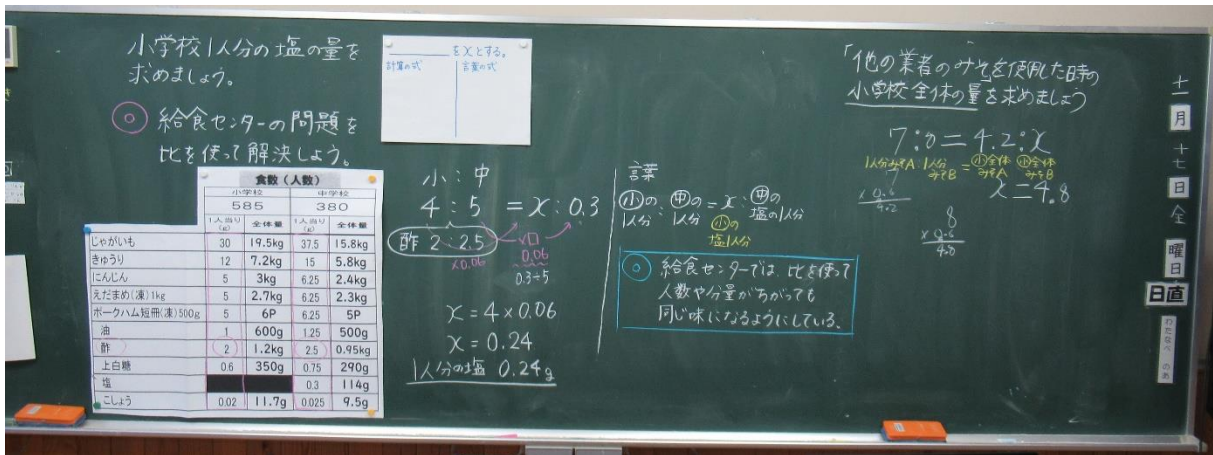 小学校1人分の塩の量を
求めましょう。
◎ 給食センターの問題を
比を使って解決しよう。
食数（人数）
小学校 中学校
585 380
1人当り(g) 全体量 1人当り(g) 全体量
じゃがいも 30 19.5kg 37.5 15.8kg
きゅうり 12 7.2kg 15 5.8kg
にんじん 5 3kg 6.25 2.4kg
えだまめ(凍)1kg 5 2.7kg 6.25 2.3kg
ポークハム短冊(凍)500g 5 6P 6.25 5P
油 1 600g 1.25 500g
酢 2 1.2kg 2.5 0.95kg
上白糖 0.6 350g 0.75 290g
塩 0.3 114g
こしょう 0.02 11.7g 0.025 9.5g
をxとする。
計算の式 言葉の式
小:中
4:5=x:0.3
酢 2:2.5
×0.06
×□
0.06
0.3÷5
x=4×0.06
x=0.24
1人分の塩 0.24g
言葉
小の1人分:中の1人分=x:中の塩の1人分
小の塩1人分
◎ 給食センターでは、比を使って
人数や分量がちがっても
同じ味になるようにしている。
「他の業者のみそを使用した時の
小学校全体の量を求めましょう
7:8=4.2:x
1人分みそA:1人分みそB=小全体みそA:小全体みそB
x=4.8
7
×0.6
4.2
8
×0.6
4.8
十一月十七日全曜日
日直
わたなべ のあ